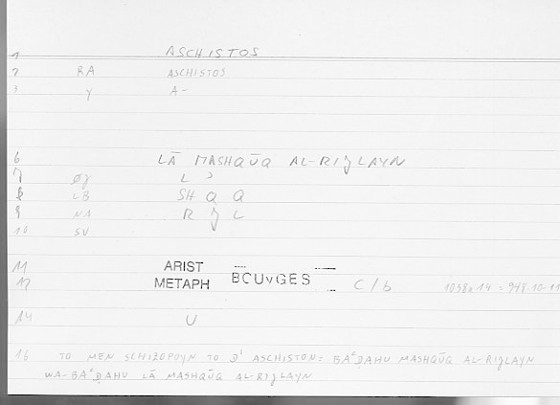 1 ASCHISTOS
2 RA ASCHISTOS
3 γ A-
6 LĀ MASHQŪQ AL-RIǧLAYN
7 øj L ʾ
8 LB SH Q Q
9 NA R ǧ L
10 SV
11 ARIST
12 METAPH BOUYGES C/b 1038a14 = 948.10-11
14 U
16 TO MEN SCHIZOPOYN TO D' ASCHISTON: BAʿḌAHU MASHQŪQ AL-RIǧLAYN
WA-BAʿḌAHU LĀ MASHQŪQ AL-RIǧLAYN